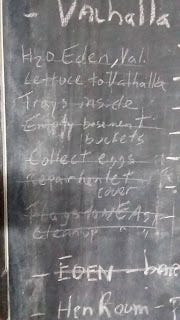 - Valhalla
H2O Eden, Val.
Lettuce to Valhalla
Trays inside
Empty basement
buckets
Collect eggs
repair henlet
cover
to NEAST
cleanup " "
- EDEN -
- Hen Room - ?